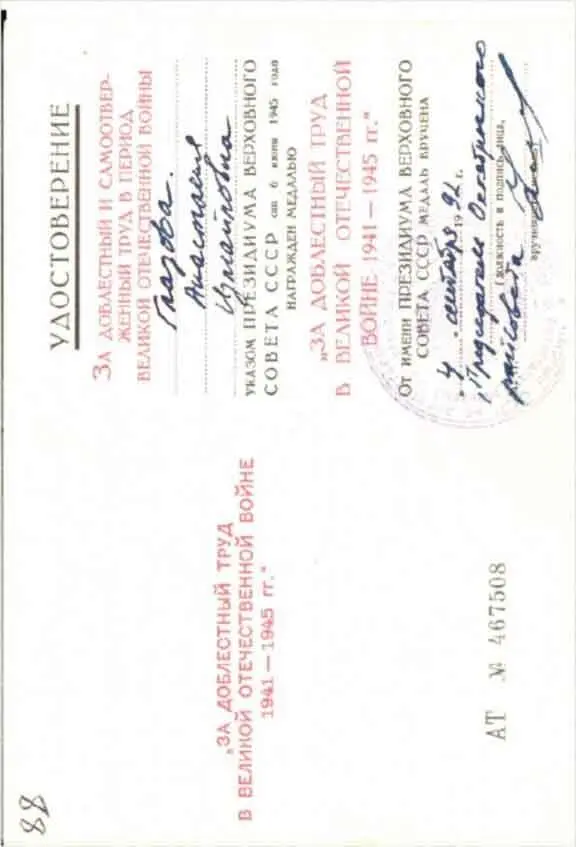 88
„ЗА ДОБЛЕСТНЫЙ ТРУД
В ВЕЛИКОЙ ОТЕЧЕСТВЕННОЙ ВОЙНЕ
1941—1945 гг.“
АТ № 467508
УДОСТОВЕРЕНИЕ
ЗА ДОБЛЕСТНЫЙ И САМООТВЕР-
ЖЕННЫЙ ТРУД В ПЕРИОД
ВЕЛИКОЙ ОТЕЧЕСТВЕННОЙ ВОЙНЫ
Глазова.
Анастасия
Измайловна
УКАЗОМ ПРЕЗИДИУМА ВЕРХОВНОГО
СОВЕТА СССР от 6 июня 1945 года
НАГРАЖДЕН МЕДАЛЬЮ
„ЗА ДОБЛЕСТНЫЙ ТРУД
В ВЕЛИКОЙ ОТЕЧЕСТВЕННОЙ
ВОЙНЕ 1941—1945 гг.“
От имени ПРЕЗИДИУМА ВЕРХОВНОГО
СОВЕТА СССР МЕДАЛЬ ВРУЧЕНА
„4 сентября 1992 г.
Председатель Октябрьского
(должность и подпись лица,
райсовета